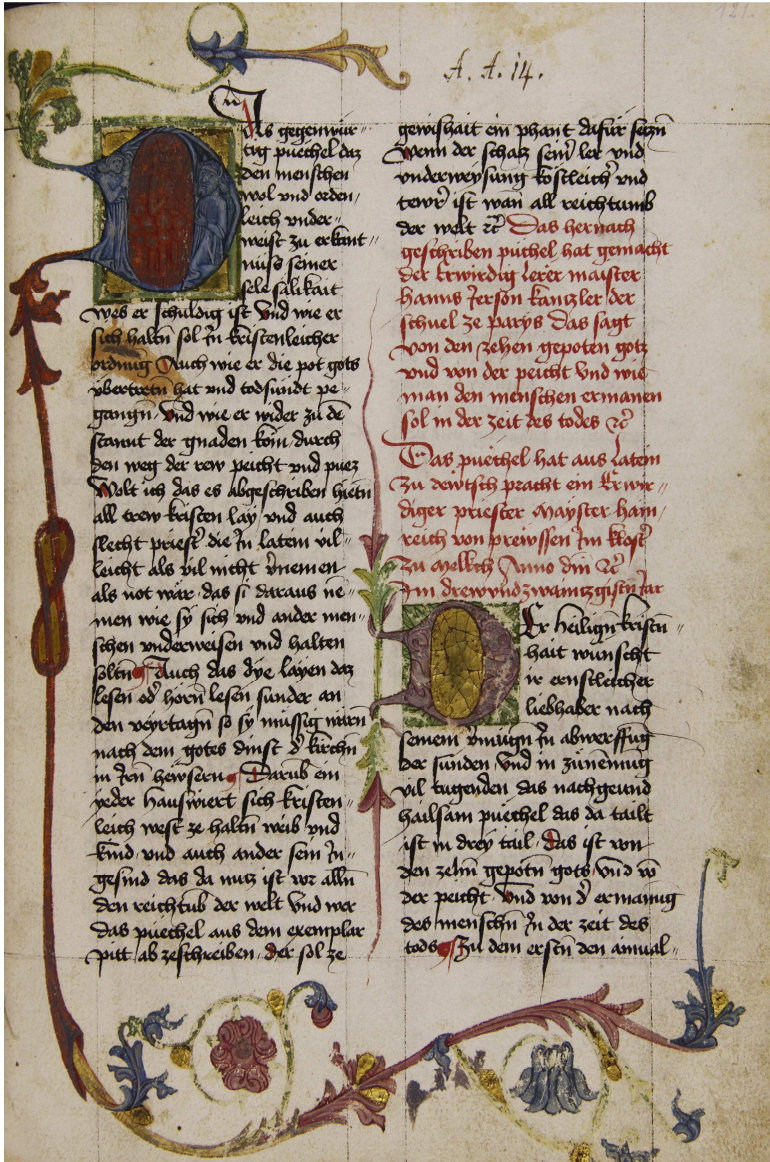 121.
A. A. 14.
Das gegenwür„
tig puechel daz
den menschen
wol vnd orden„
leich vnder„
weist zu erkant„
nüss seiner
sele sälikait
wes er schuldig ist Vnd wie er
sich haltn̄ sol Jn kristenleicher
ordnūg Auch wie er die pot gots
vbertretn̄ hat vnd todsündt pe„
gangn̄ Vnd wie er wider zu dē
stannt der gnaden kōm durch
den weg der rew peicht vnd puez
Wolt ich das es abgeschriben hietn̄
all trew kristen lay vnd auch
slecht priest̄ die Jn latein vil„
leicht als vil nicht v̄nemen
als not wär das si daraus ne„
men wie sÿ sich vnd ander men„
schen vnderweisen vnd halten
soltn̄ Auch das dÿe layen daz
lesen od̄ hörn̄ lesen sunder an
den veyrtagn̄ so sÿ müssig wärn̄
nach dem gotes dinst d̄ kirchn̄
in Jrn̄ hewsern Darūb ein
yeder hauswiert sich kristen„
leich west ze haltn̄ weib vnd
kind vnd auch ander sein Jn„
gesind das da nutz ist vor alln̄
den reichtūb der welt Vnd wer
das püechel aus dem exemplar
pitt ab zeschreiben der sol ze
gewishait ein phant dafür setzn̄
Wenn der schatz sein̄ ler vnd
vnderweysung kostleich̄ vnd
tewr̄ ist wan all reichtumb
der welt ꝛc̄ Das hernach
geschriben püchel hat gemacht
der Erwirdig lerer maister
hanns Jerson kanzler der
schuel ze parys Das sagt
von den zehen gepoten gotz
vnd von der peicht Vnd wie
man den menschen ermanen
sol in der zeit des todes ꝛc̄
Das püechel hat aus latein
zu dewtsch pracht ein Erwir„
diger priester Mayster hain„
reich von prewssen Jm klost̄
zu Mellkch Anno dn̄i ꝛc̄
Jm drewvndzwaintzgistn̄ Jar
Der heilign̄ kristn̄„
hait wünscht
ir ernstleicher
liebhaber nach
seinem v̄mügn̄ Jn abwerffūg
der sünden Vnd in zünemūg
vil tugenden das nachgeund
hailsam püechel das da tailt
ist in dreÿ tail Das ist von
den zehn̄ gepotn̄ gots Vnd vō
der peicht Vnd von d̄ ermanūg
des menschn̄ Jn der zeit des
tods Zu dem erstn̄ den ainual„